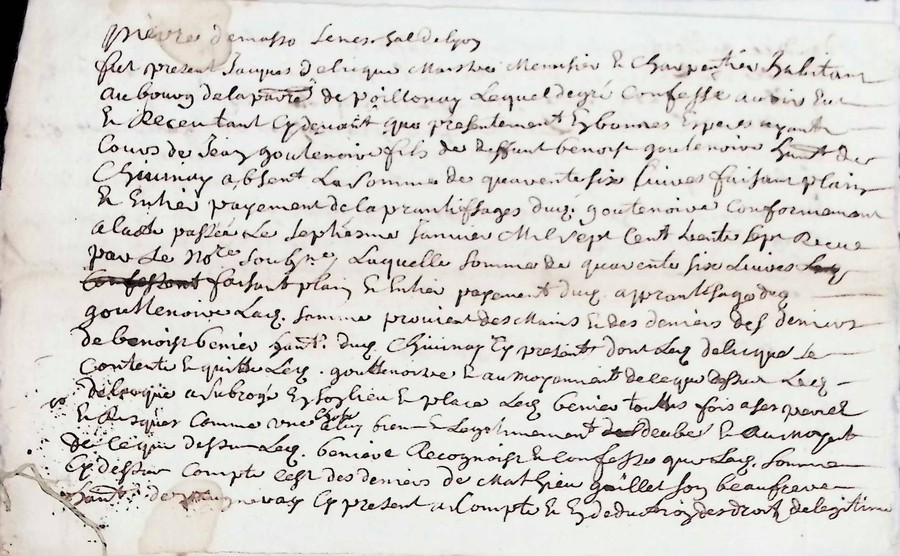 fut present Jacques delicque Maistre Menusier Et Charpentier habitant
au bourg de la parr.e de poillonay Lequel de gré Confesse avoir Eut
Et Receu tant Cy devant que presentement Ey bonnes Especes ayant
Cours de Jean gouttenoire fils de deffunt benoist gouttenoire hant. de
Chivinay absent La Somme de quarente six Livres faisant plain
Et Entier payement de la prantissages dud. gouttenoire Conformement
a lacte passée Le Sephiesme Janvier Mil Sept Cent trente Sept Receue
par Le No.re Soubz.ne Laquelle Somme de quarente six Livres
faisant plain Et Entier payement dud. aprantisage dud.
gouttenoire Lad. Somme provient des Mains Et des deniers des deniers
de benoist benier hant. dud. Chivinay Cy present dont Led. delicque Se
Contente Et quitte Led. gouttenoire Et au moyennent de ce que dessus Led.
delicque a Subrogé Ey Soy lieu Et place Led. benier touttes fois a ses peril
Et Risques Comme une Chose luy bien Et Legitimement deube Et au moyent
de Ce que dessus Led. benier Recognoist Et Confesse que Lad. Somme
Cy dessus Compté C'est des deniers de Mathieu gaillet Soy beaufrere
hant. de Cy present a Compte Et Ey deduction des droits de legitime